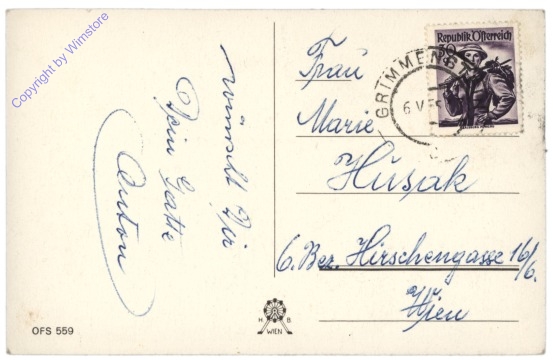 Copyright by Wimstore
wünscht Dir
Dein Gatte
Anton
Republik Österreich
GRIMMENST
6. V.
Frau
Marie
Husak
6. Bez. Hirschengasse 16/6.
Wien
H. B.
WIEN
OFS 559